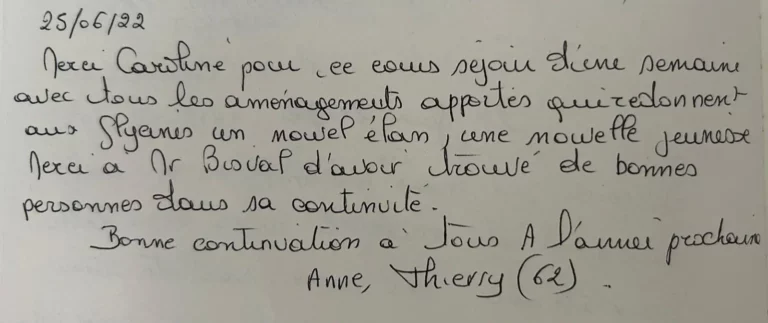 25/06/22
Merci Caroline pour ce cours séjour d'une semaine
avec tous les aménagements apportés qui redonnent
aux un nouvel élan, une nouvelle jeunesse
Merci à Mr d'avoir trouvé de bonnes
personnes dans sa continuité.
Bonne continuation à Tous A l'année prochaine
Anne, Thierry (62).